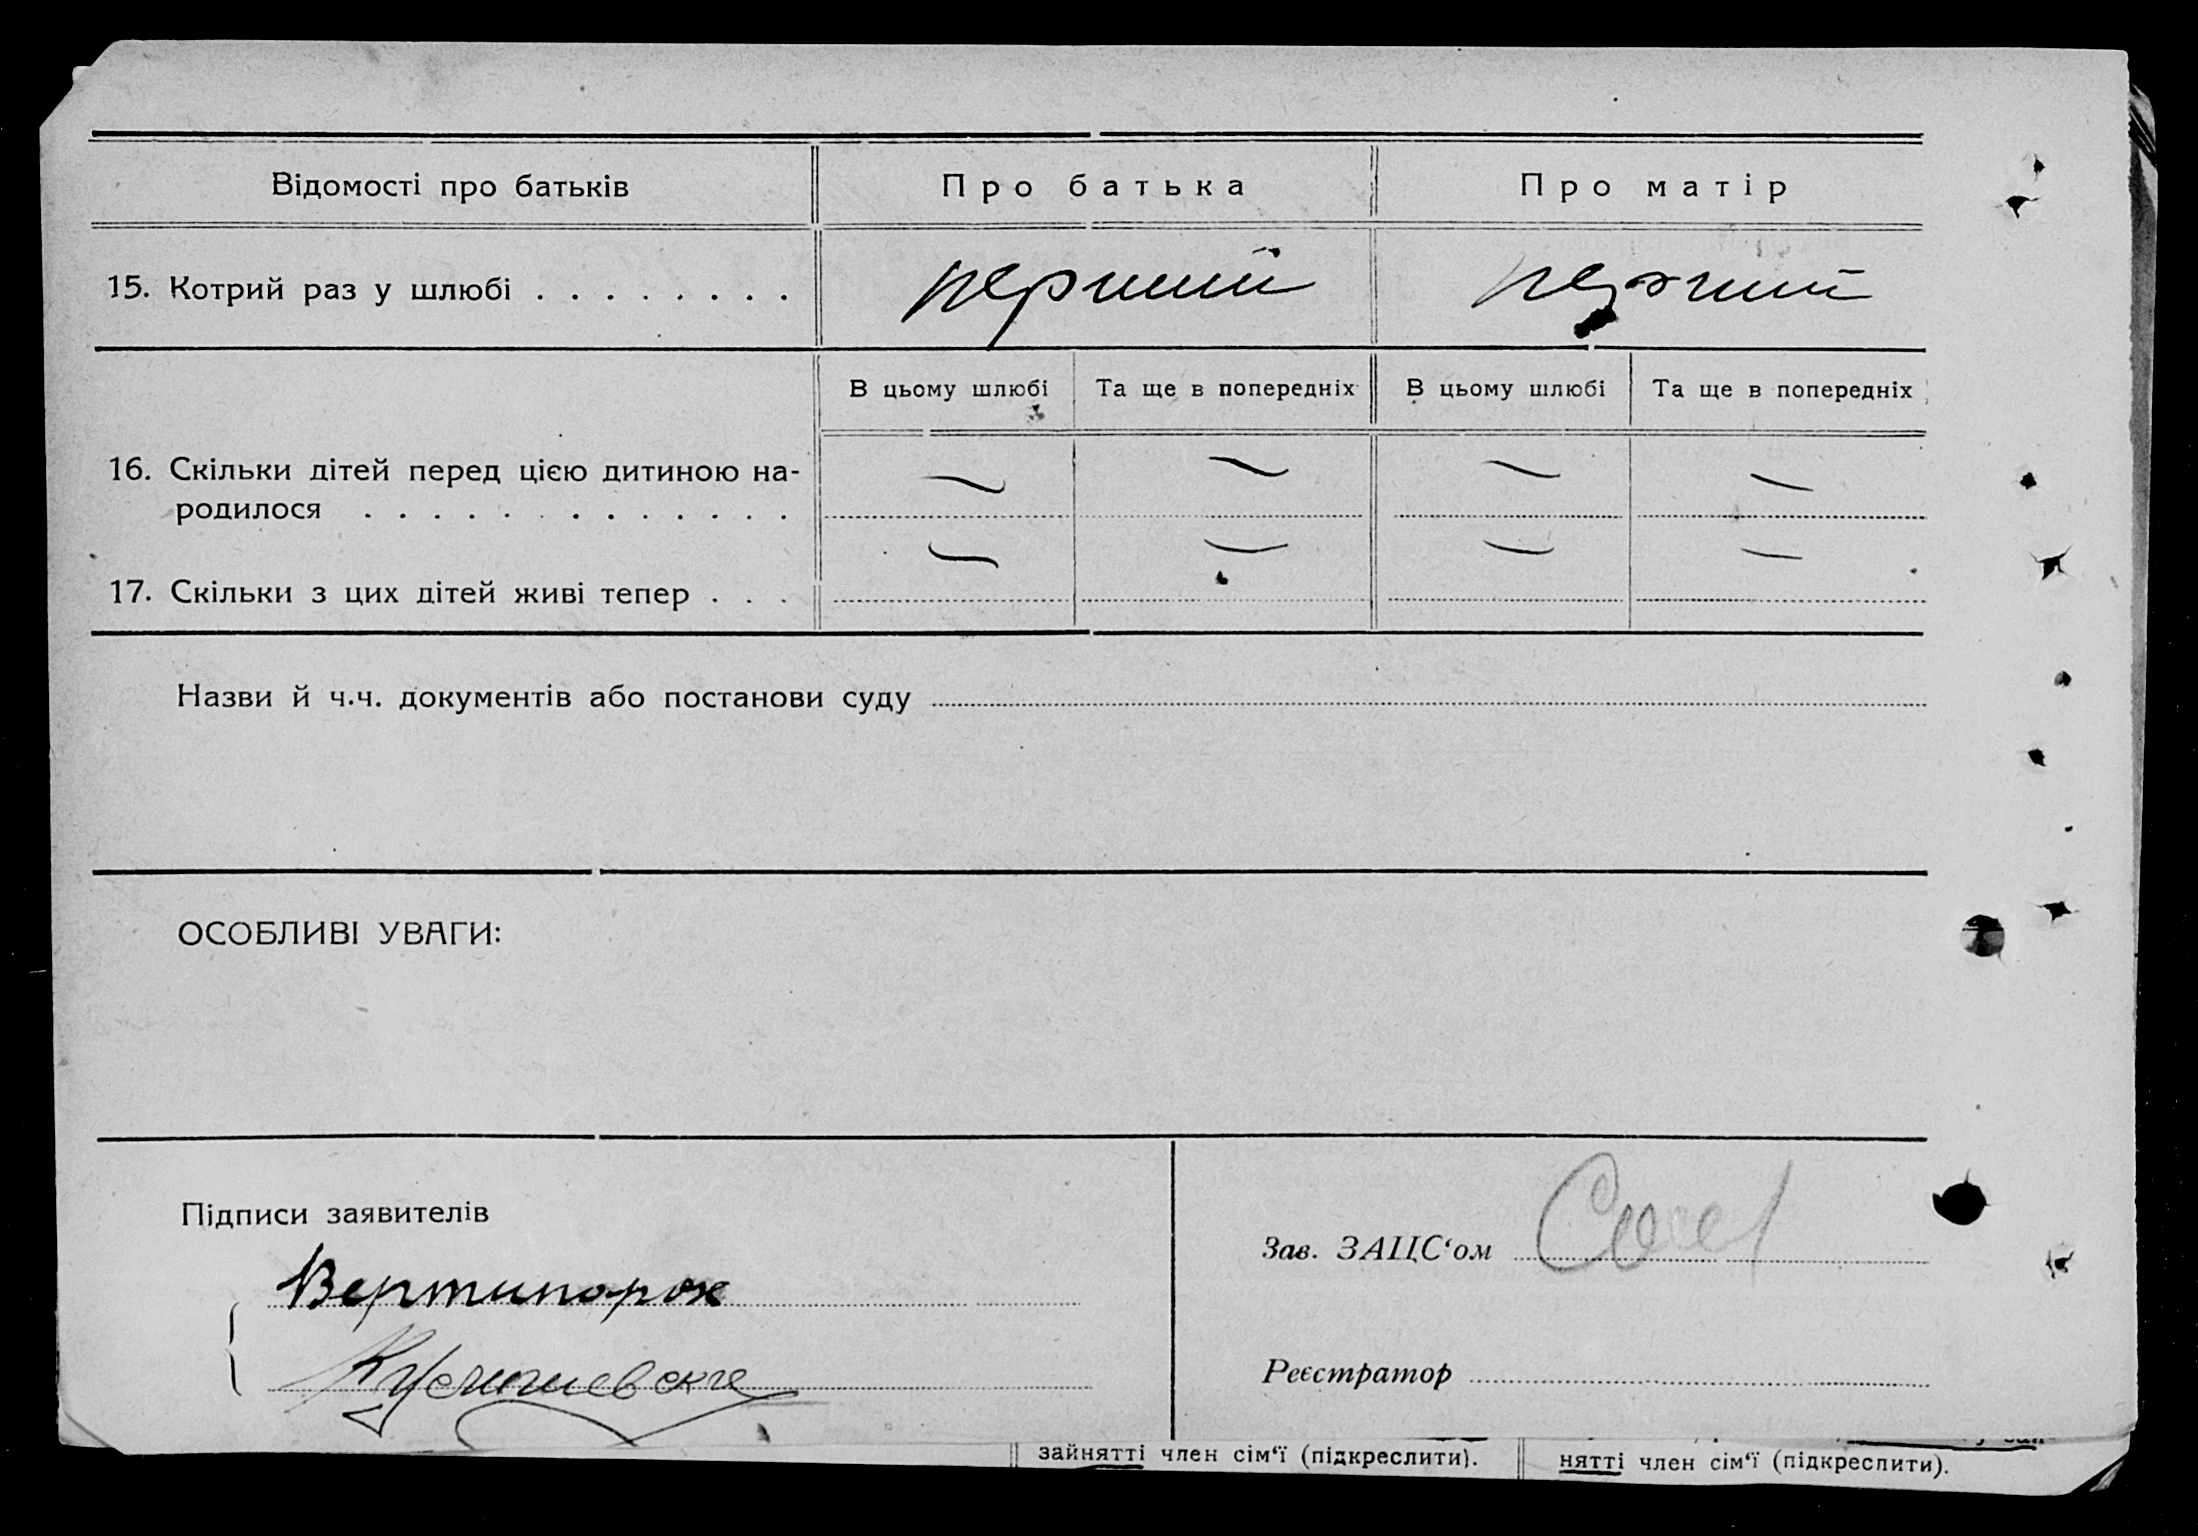 Відомості про батьків
Про батька
Про матір
15. Котрий раз у шлюбі . . . . . . . .
перший
перший
В цьому шлюбі
Та ще в попередніх
В цьому шлюбі
Та ще в попередніх
16. Скільки дітей перед цією дитиною на-
родилося . . . . . . . . . . . . .
— — — —
17. Скільки з цих дітей живі тепер . . .
— — — —
Назви й ч.ч. документів або постанови суду
ОСОБЛИВІ УВАГИ:
Підписи заявителів
Вертипорох
Зав. ЗАЦС‘ом
Реєстратор
зайнятті член сім‘ї (підкреслити).
нятті член сім‘ї (підкреслити).